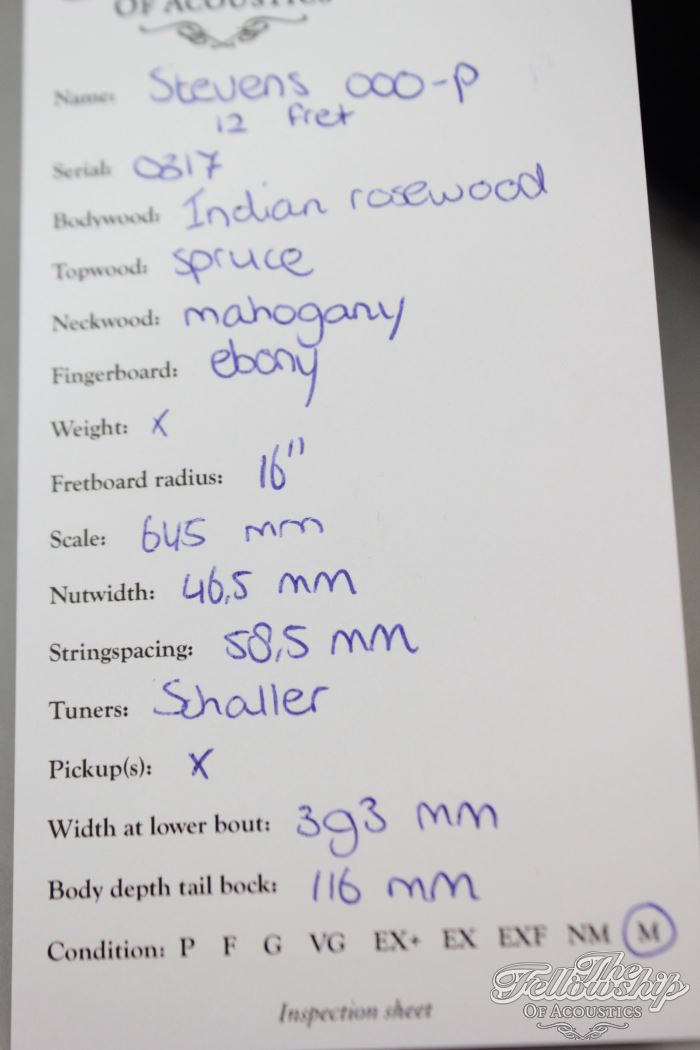 OF ACOUSTICS
Name: Stevens 000-P
12 fret
Serial: 0317
Bodywood: Indian rosewood
Topwood: spruce
Neckwood: mahogany
Fingerboard: ebony
Weight: X
Fretboard radius: 16"
Scale: 645 mm
Nutwidth: 46,5 mm
Stringspacing: 58,5 mm
Tuners: Schaller
Pickup(s): X
Width at lower bout: 393 mm
Body depth tail bock: 116 mm
Condition: P F G VG EX+ EX EXF NM M
Inspection sheet
The
Fellowship
OF ACOUSTICS